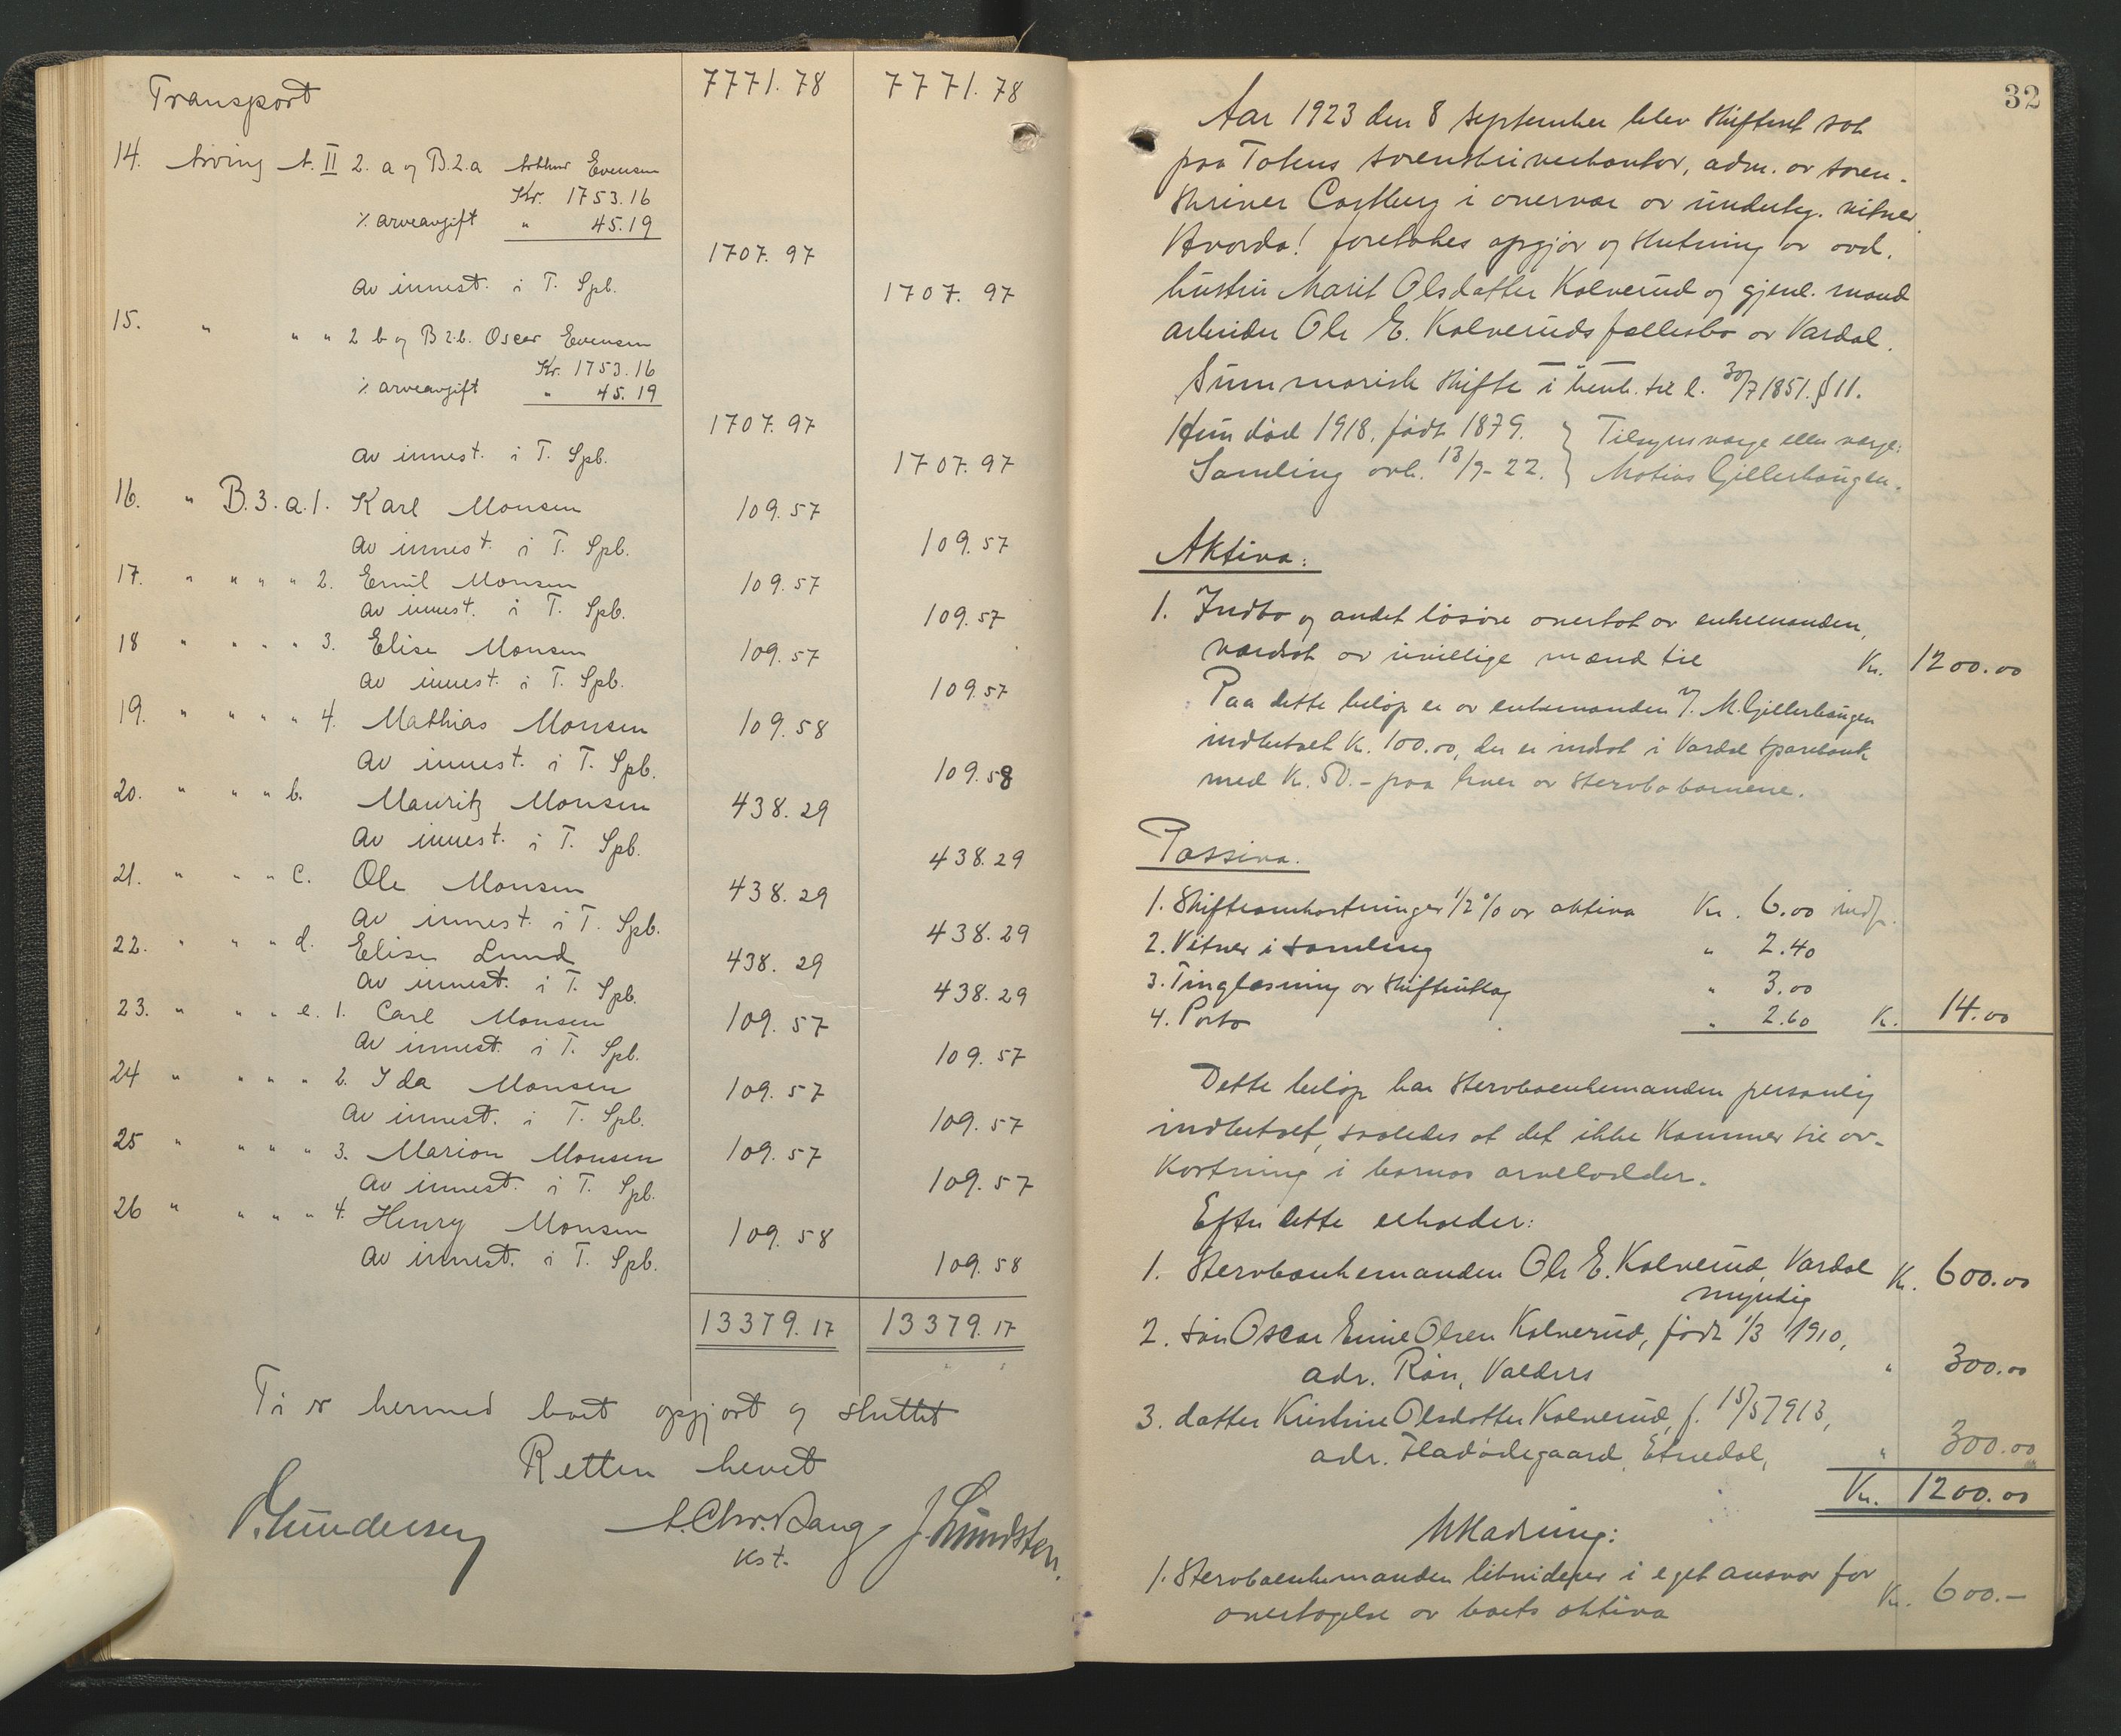 Transport 7771.78 7771.78
14. Arving A. II 2. a og B.2.a Arthur Evensen
Kr. 1753.16
% arveavgift " 45.19
1707.97
av innest. i T. Spb. 1707.97
15. " " " 2 b og B 2.b. Oscar Evensen
Kr. 1753.16
% arveavgift " 45.19
1707.97
av innest. i T. Spb. 1707.97
16. " B.3.a.1. Karl Monsen 109.57
av innest. i T. Spb. 109.57
17. " " " " 2. Emil Monsen 109.57
av innest. i T. Spb. 109.57
18 " " " " 3. Elise Monsen 109.57
av innest. i T. Spb. 109.57
19. " " " " 4. Mathias Monsen 109.58
av innest. i T. Spb. 109.58
20. " " " b. Mauritz Monsen 438.29
av innest. i T. Spb. 438.29
21. " " " c. Ole Monsen 438.29
av innest. i T. Spb. 438.29
22. " " " d. Elise Lund 438.29
av innest. i T. Spb. 438.29
23. " " " e. 1. Carl Monsen 109.57
av innest. i T. Spb. 109.57
24 " " " " 2. Ida Monsen 109.57
av innest. i T. Spb. 109.57
25 " " " " 3. Marion Monsen 109.57
av innest. i T. Spb. 109.57
26 " " " " 4. Henry Monsen 109.58
av innest. i T. Spb. 109.58
13379.17 13379.17
Ti er hermed boet opgjort og sluttet
Retten hevet
P. Gundersen A. Chr. Bang J. Lundsten.
Kst.
32
Aar 1923 den 8 september blev skifteret sat
paa Totens sorenskriverkontor, adm. av soren-
skriver Castberg i overvær av underteg. vitner.
Hvorda! foretokes opgjør og slutning av avd.
hustru Marit Olsdatter Kalverud og gjenl. mand
arbeider Ole E. Kalveruds fællesbo av Vardal.
Summarisk skifte i henh. til l. 30/7 1851. § 11.
Hun død 1918, født 1879. } Tilsynsværge eller værge:
Samling avh. 13/9-22. } Matias Gjillerhaugen.
Aktiva:
1. Indbo og andet løsøre overtat av enkemanden,
værdsat av uvillige mænd til Kr. 1200.00
Paa dette beløp er av enkemanden v/ M. Gjillerhaugen
indbetalt Kr. 100.00, der er indsat i Vardal Sparebank
med Kr. 50.- paa hver av stervbobarnene.
Passiva.
1. Skifteomkostninger 1/2 % av aktiva Kr. 6.00 indf.
2. Vitner i samling " 2.40
3. Tinglæsning av skifteutlæg " 3.00
4. Porto " 2.60 K. 14.00
Dette beløp har stervboenkemanden personlig
indbetalt, saaledes at det ikke kommer til av-
kortning i barnas arvelodder.
Efter dette erholder:
1. Stervboenkemanden Ole E. Kalverud, Vardal Kr. 600.00
myndig
2. søn Oscar Emil Olsen Kalverud, født 1/3 1910,
adr. Røn, Valdres " 300.00
3. datter Kristine Olsdatter Kalverud, f. 15/5 1913,
adr. Fladødegaard, Etnedal, " 300.00
Kr. 1200.00
Utlædning:
1. Stervboenkemanden likviderer i eget ansvar for
overtagelse av boets aktiva Kr. 600.-